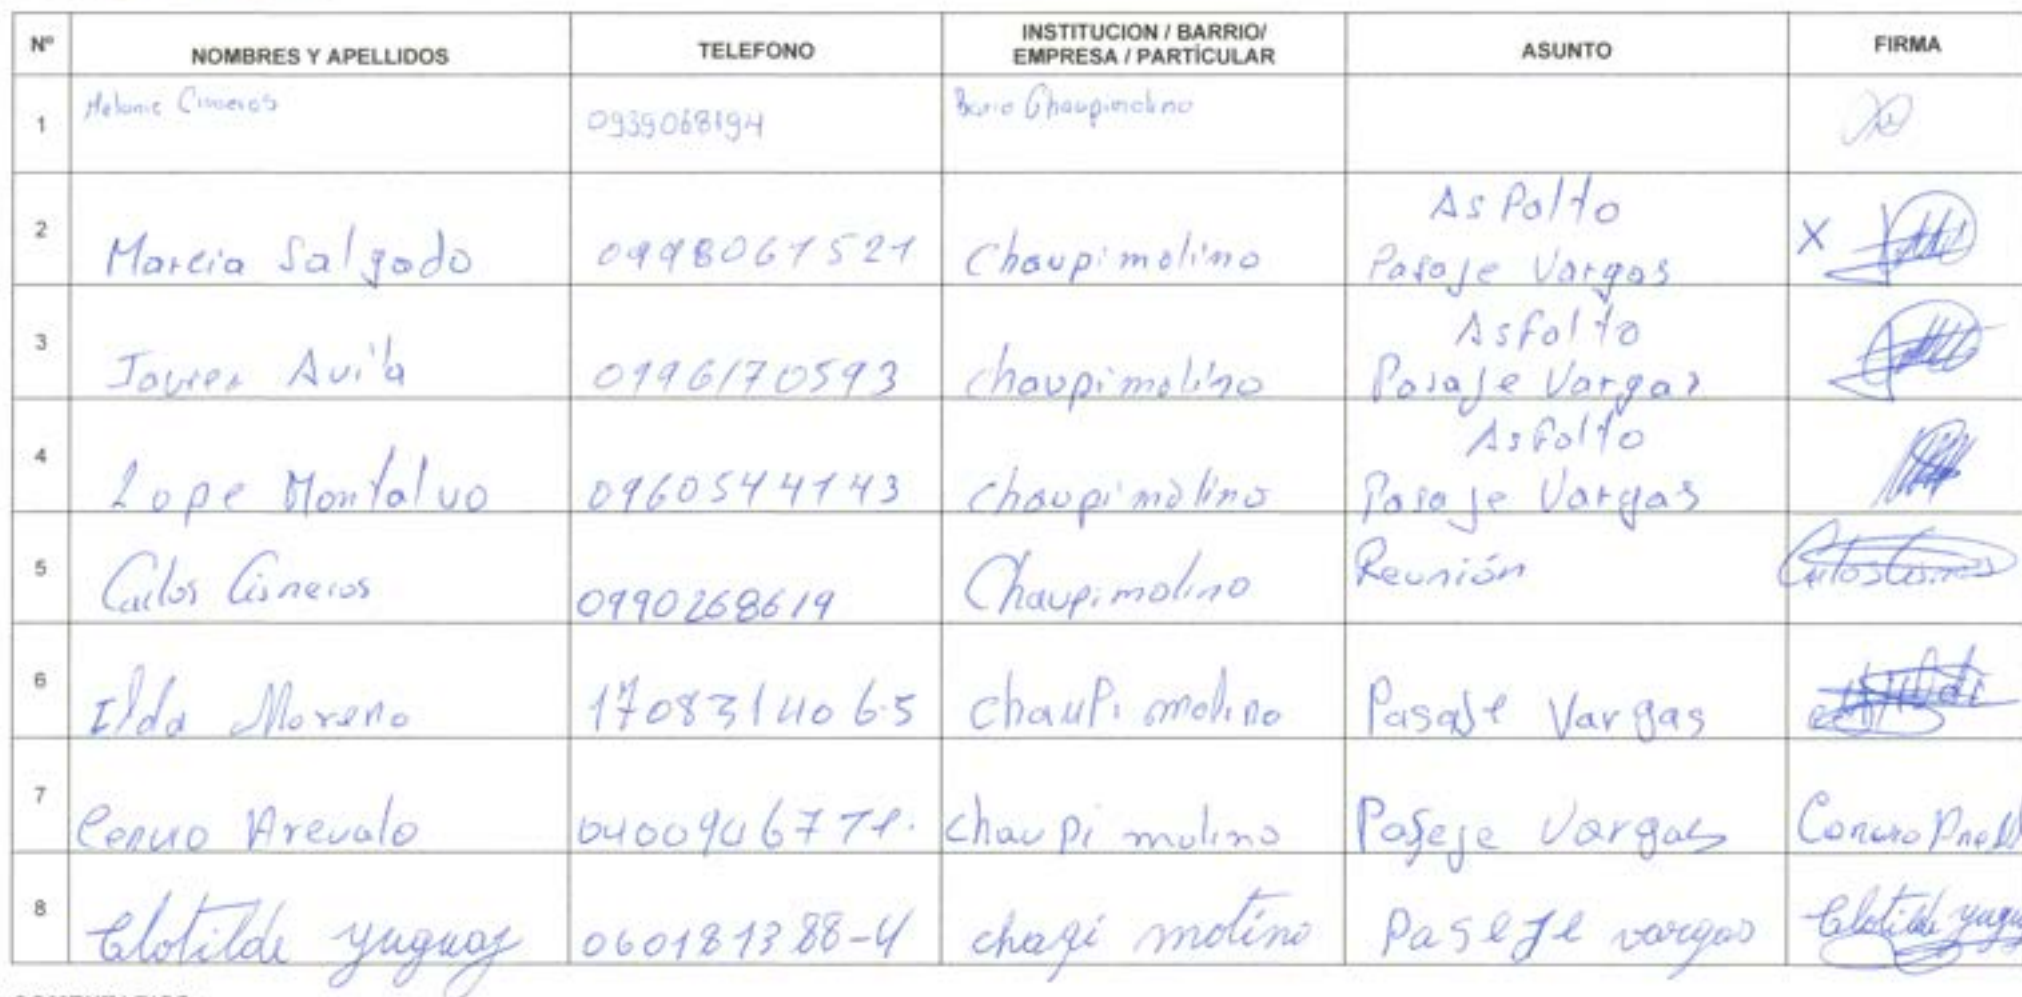 Nº NOMBRES Y APELLIDOS TELEFONO INSTITUCION / BARRIO/ EMPRESA / PARTÍCULAR ASUNTO FIRMA
1 Melanie Cisneros 0939068194 Barrio Chaupimolino
2 Marcia Salgado 0998061521 Chaupimolino Aspalto
Pasaje Vargas X
3 Javier Avila 0996170593 chaupimolino Asfalto
Pasaje Vargas
4 Lope Montalvo 0960544143 chaupimolino Asfalto
Pasaje Vargas
5 Carlos Cisneros 0990268619 Chaupimolino Reunión Carlos Cisneros
6 Ilda Moreno 170831406-5 chauPi molino Pasaje Vargas
7 Arevalo chaupi molino Paseje Vargas
8 Clotilde yuguay 060181388-4 chagi molino Paseje vargas Clotilde